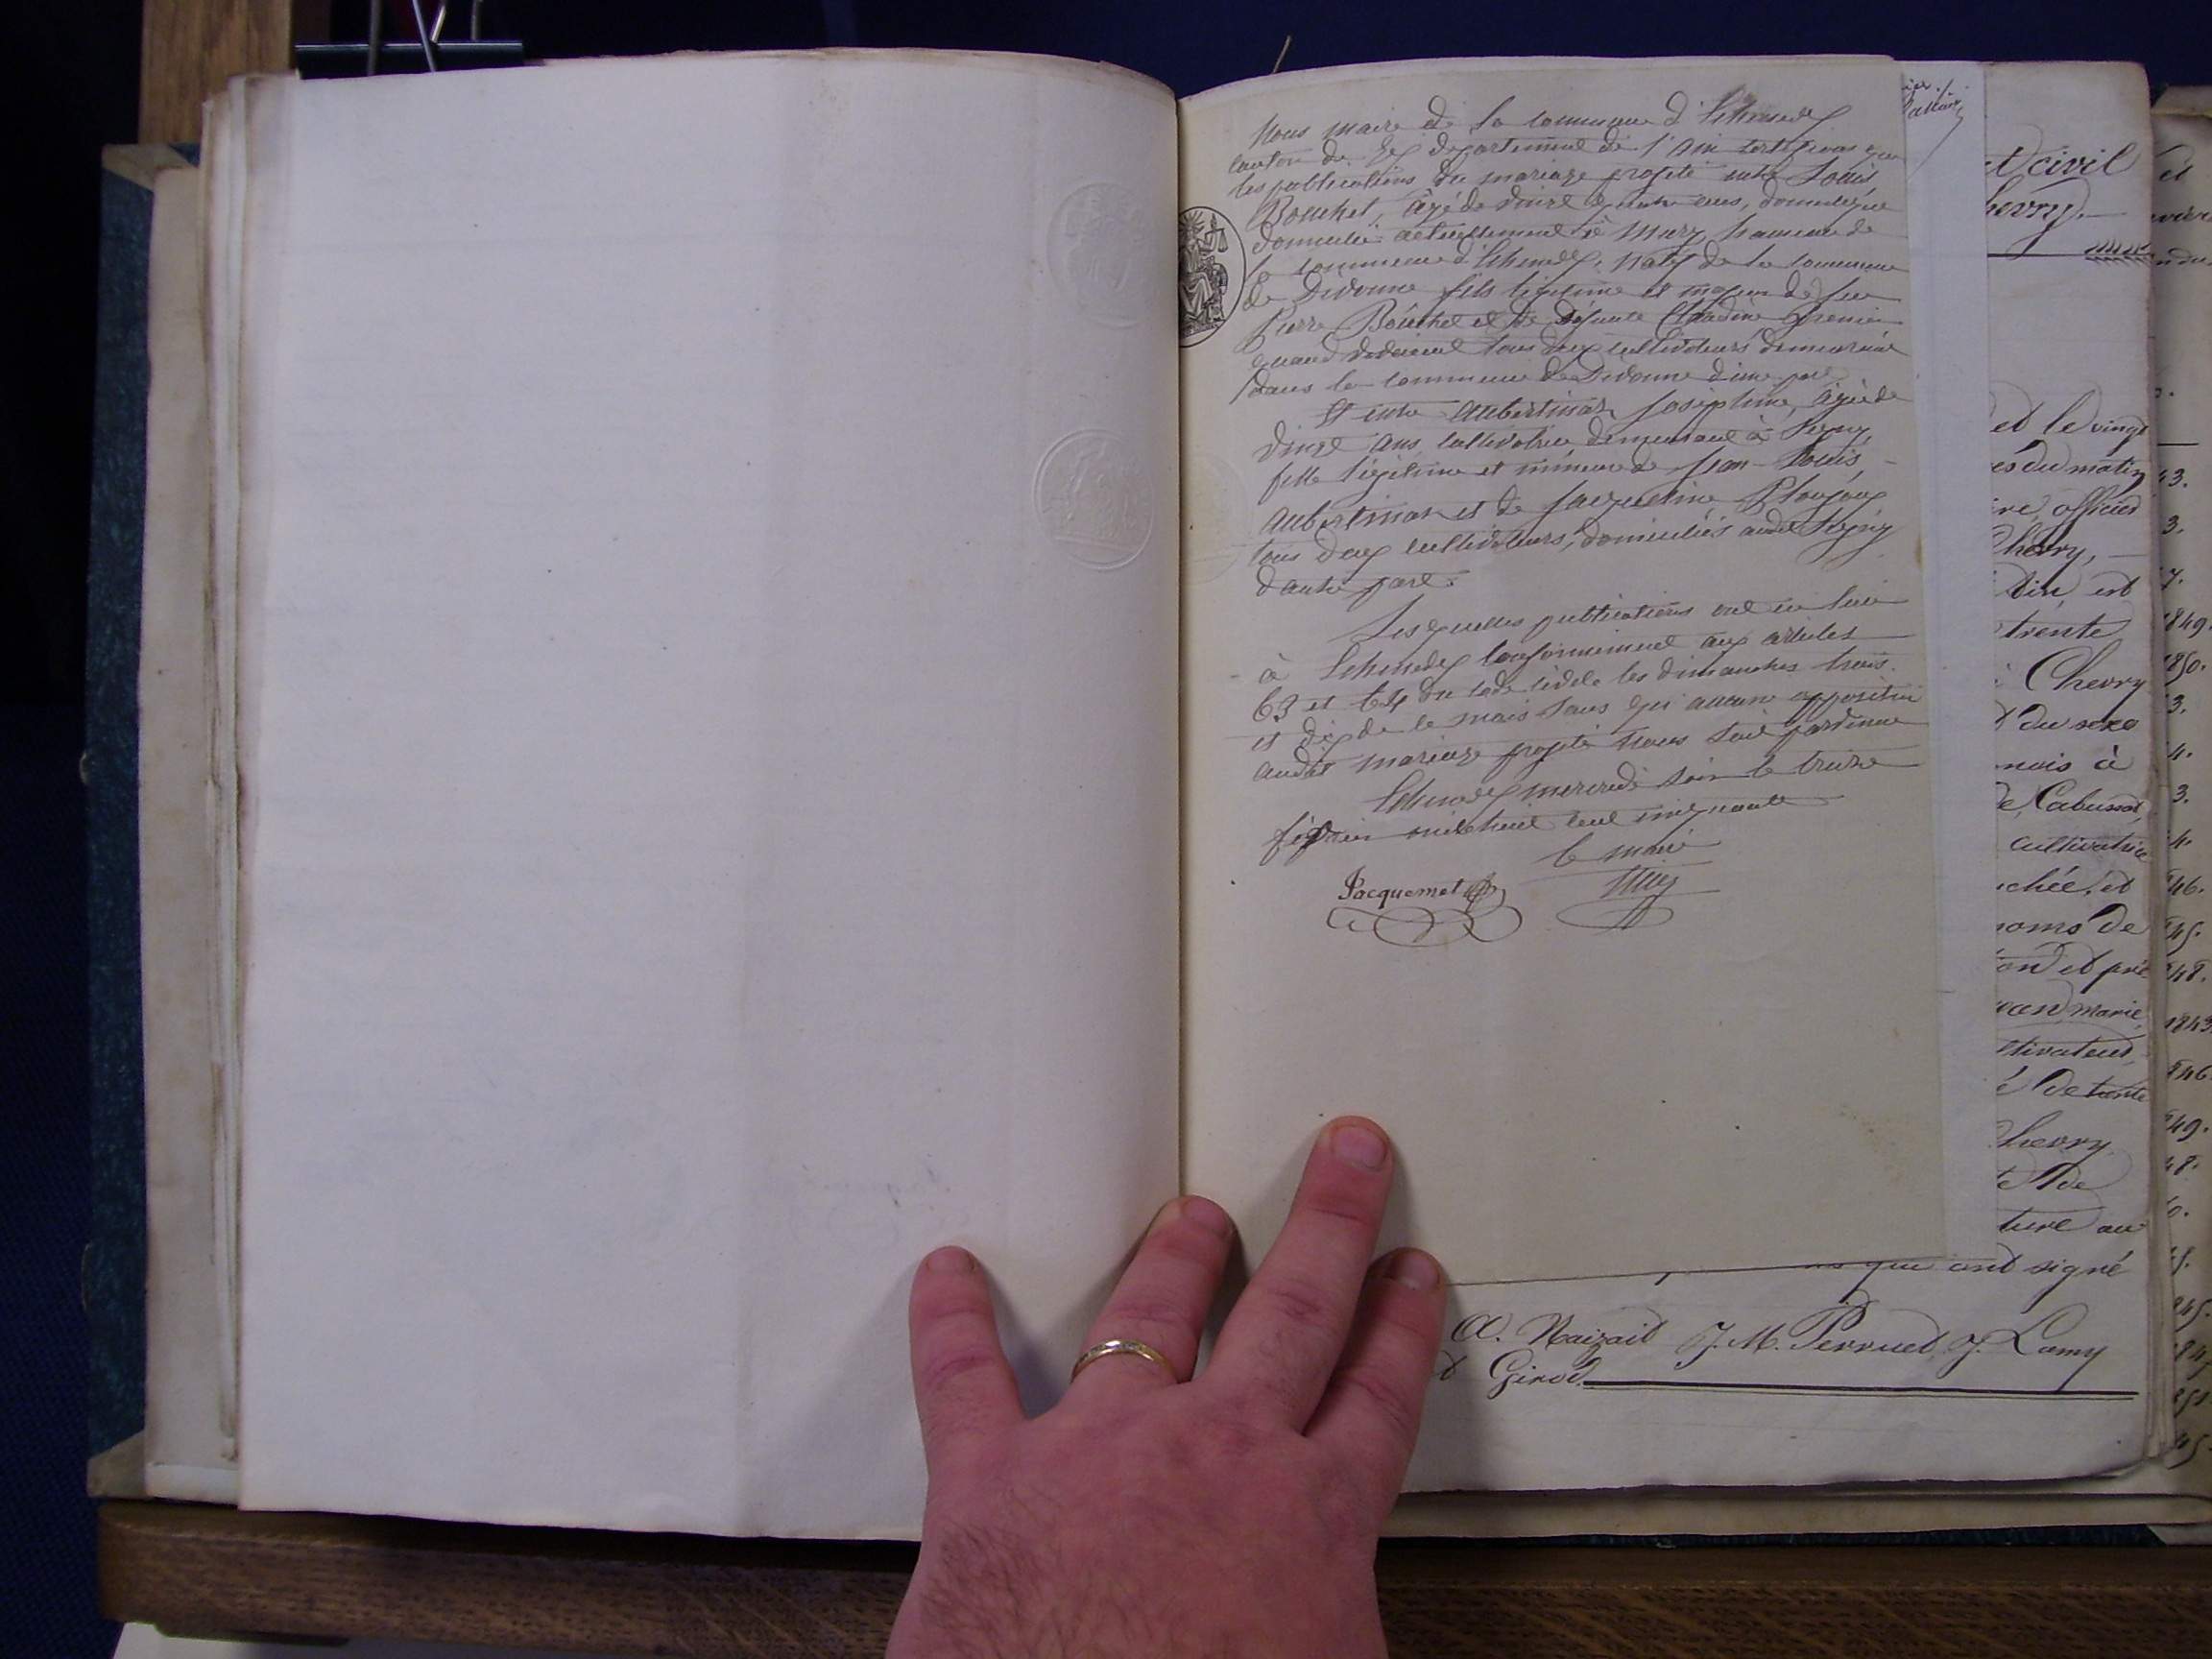 Nous maire de la commune d'Echenevex
canton de Gex departement de l'Ain certifions que
les publications du mariage projeté entre Louis
Bouchet, âgé de vingt quatre ans, domestique
domicilié actuellement à Mury hameau de
la commune d'Echenevex, natif de la commune
de Divonne fils légitime et majeur de feu
Pierre Bouchet et de défunte Claudine Grenier
quand vivaient tous deux cultivateurs demeurant
dans la commune de Divonne d'une part
Et entre Aubertinat Josephine, âgée de
vingt ans, cultivatrice demeurant à Segny,
fille légitime et mineure de Jean-Louis
Aubertinat et de Jacqueline Ploujoux
tous deux cultivateurs, domiciliés audit Segny
d'autre part.
Lesquelles publications ont eu lieu
à Echenevex conformément aux articles
63 et 64 du code civile les dimanches trois
et dix de ce mois sans qu'aucune opposition
audit mariage projeté nous soit parvenue
Echenevex mercredi soir le treize
février mil huit cent cinquante
le maire
Jacquemet
et civil
Chevry
et le vingt
res du matin 43.
officier 3.
Chevry, 7.
est
trente 1849.
Chevry 1850.
du sexe 3.
mois à 4.
de Cabussat, 3.
cultivatrice 4.
chée, et 46.
noms de 45.
et pré 48.
marie, 1843
ltivateur 46
de trente 49.
Chevry 48.
de
ture au
que ont signé
A. Naizait J. M. Perruet J. Lamy
Girod